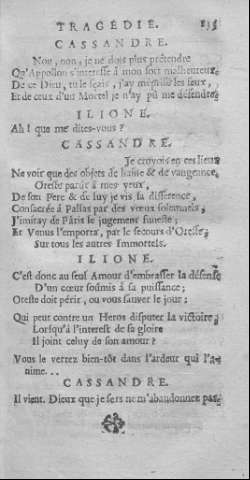 TRAGEDIE. 135
CASSANDRE.
Non, non, je ne dois plus prétendre
Qu'Appollon s'interesse à mon sort malheureux.
De ce Dieu, tu le sçais, j'ay méprisé les feux,
Et de ceux d'un Mortel je n'ay pû me défendre.
ILIONE.
Ah ! que me dites-vous ?
CASSANDRE.
Je croyois en ces lieux
Ne voir que des objets de haine & de vangeance,
Oreste parût à mes yeux,
De son Pere & de luy je vis la difference,
Consacrée à Pallas par des vœux solemnels,
J'imitay de Pâris le jugement funeste;
Et Venus l'emporta, par le secours d'Oreste,
Sur tous les autres Immortels.
ILIONE.
C'est donc au seul Amour d'embrasser la défense
D'un cœur soûmis à sa puissance;
Oreste doit périr, ou vous sauver le jour;
Qui peut contre un Heros disputer la victoire,
Lorsqu'à l'interest de sa gloire
Il joint celuy de son amour ?
Vous le verrez bien-tôt dans l'ardeur qui l'a-
nime...
CASSANDRE.
Il vient. Dieux que je sers ne m'abandonnez pas.